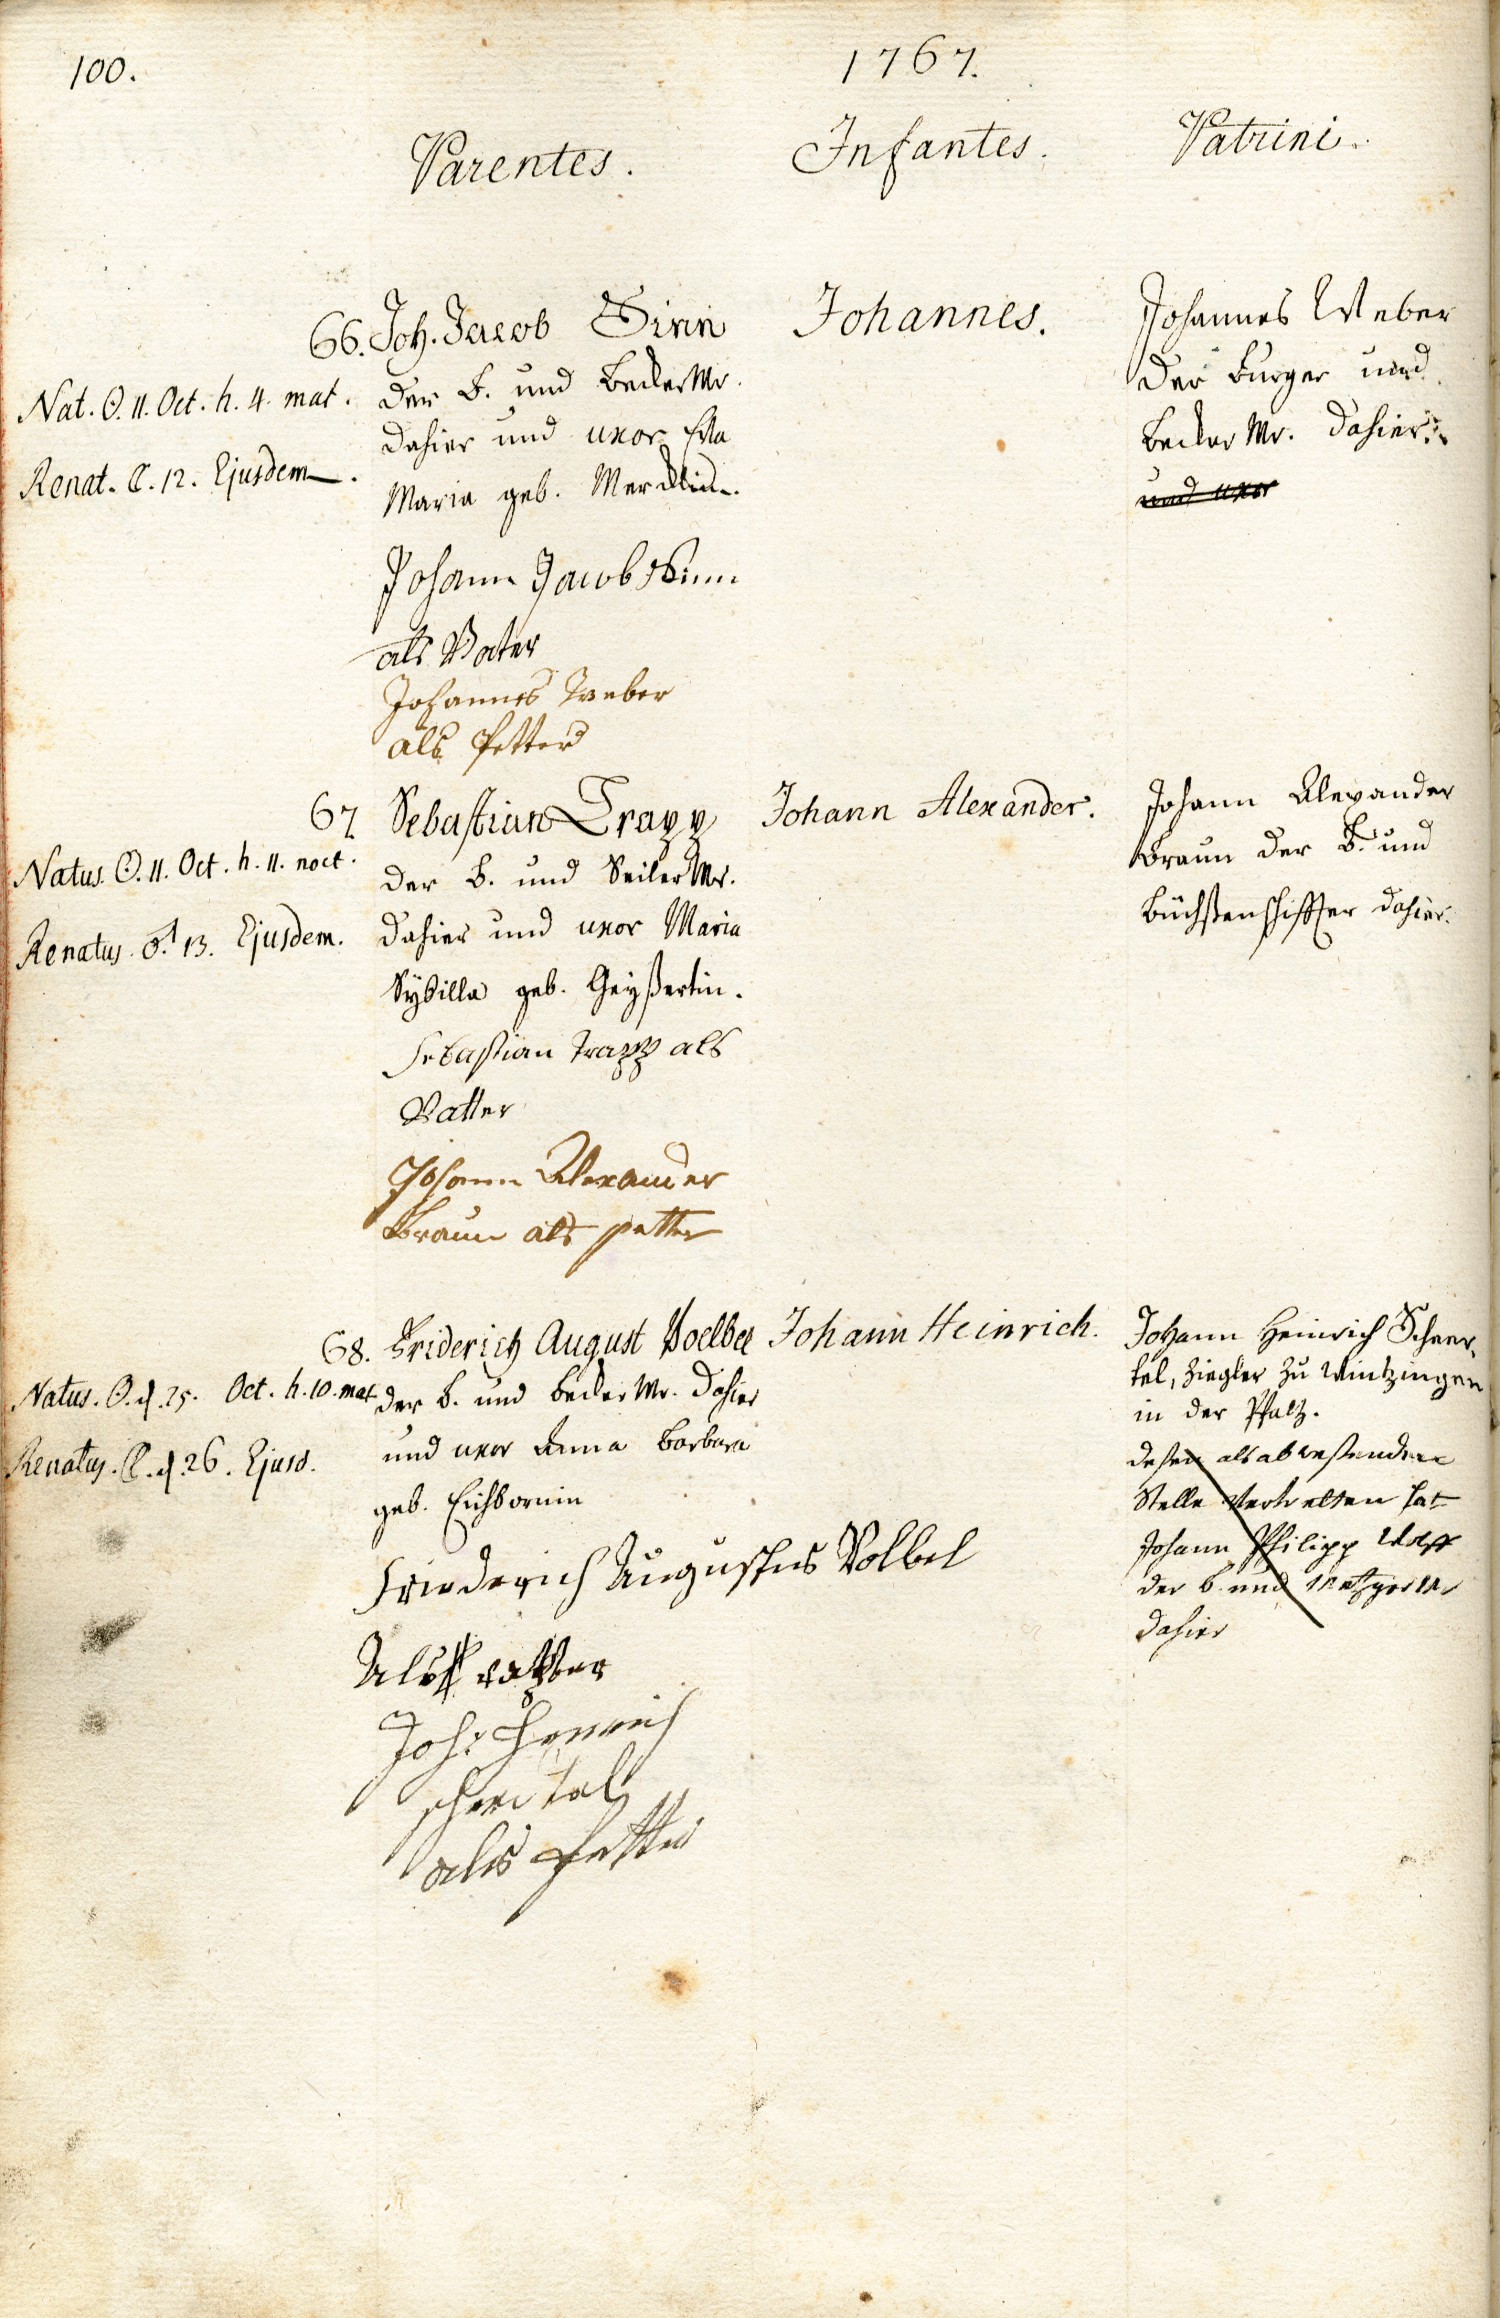 100.
1767.
Parentes.
Infantes.
Patrini.
66. Joh. Jacob Sinn
Nat. ☉. 11. Oct. h. 4. mat.
Renat. ☾. 12. Ejusdem.
der B. und Becker Mr.
dahier und uxor Eva
Maria geb.
Johann Jacob Sinn
als Vater
Johannes Weber
als Petter
Johannes.
Johannes Weber
der Burger und
Becker Mr. dahier.
und uxor
67
Natus. ☉. 11. Oct. h. 11. noct.
Renatus. ♂. 13. Ejusdem.
Sebastian Trapp
der B. und Seiler Mr.
dahier und uxor Maria
Sybilla geb. Geyßertin.
Sebastian Trapp als
Vatter
Johann Alexander
Braun als petter
Johann Alexander.
Johann Alexander
Braun der B. und
Büchsenschiffter dahier.
68.
Natus. ☉. d. 25. Oct. h. 10. mat.
Renatus. ☾. d. 26. Ejusd.
Friderich August Voelbel
der B. und Becker Mr. dahier
und uxor Anna Barbara
geb. Eichbornin
Friederich Augustus Volbel
Als vatter
Joh: Henrich
als Petter
Johann Heinrich.
Johann Heinrich Scheer-
tel, Ziegler zu Wintzingen
in der Pfaltz.
deßen als abweßenden
Stelle vertretten hat
Johann Philipp Wolff
der B. und Metzger Mr
dahier